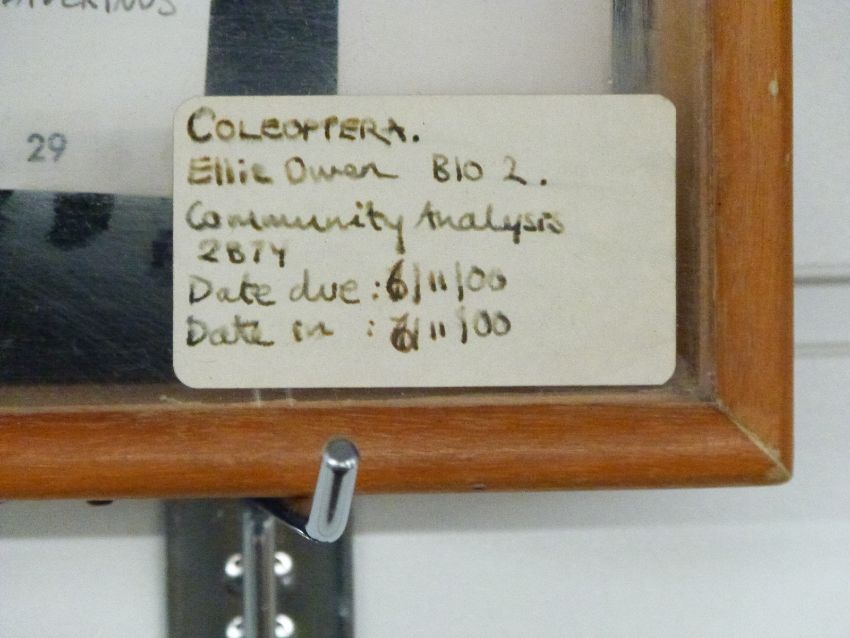 29
COLEOPTERA.
Ellie Owen BIO 2.
Community Analysis
2B7Y
Date due : 6/11/00
Date in : 6/11/00